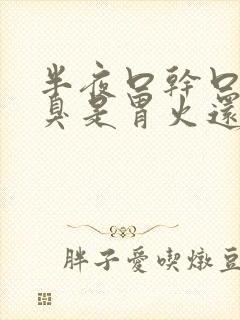 半夜口幹口
真是胃火還
胖子愛喫燉豆